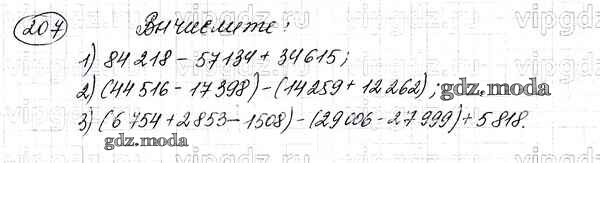 207 Вычислите:
1) 84 218 - 57 134 + 34 615;
2) (44 516 - 17 398) - (14 259 + 12 262);
gdz.moda
3) (6 754 + 2 853 - 1508) - (29 006 - 27 999) + 5 818.
gdz.moda